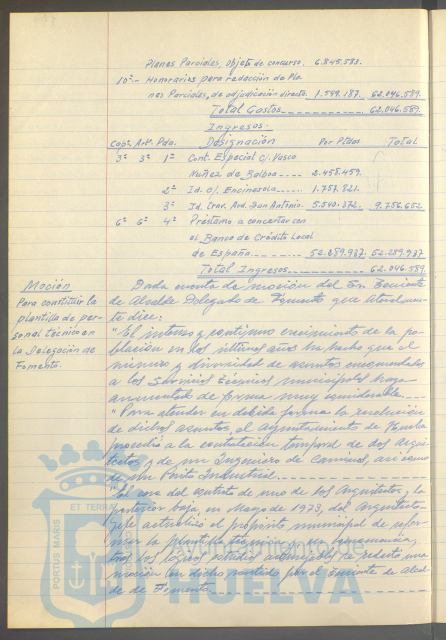 Planes Parciales, objeto de concurso. 6.845.583.
10º.- Honorarios para redacción de Pla-
nes Parciales, de adjudicación directa. 1.599.187. 62.046.589.
Total Gastos 62.046.589.
Ingresos.
Capº. Artº. Pda. Designación Por Ptdas Total
3º 3º 1º Cont. Especial c/. Vasco
Nuñez de Balboa 2.458.459.
2º Id. c/. Encinasola 1.757.821.
3º Id. Trav. Avd. San Antonio. 5.540.372. 9.756.652
6º 6º 4º Préstamo a concertar con
el Banco de Crédito Local
de España 52.289.937 52.289.937
Total Ingresos 62.046.589
Moción
Para constituir la
plantilla de per-
sonal técnico en
la Delegación de
Fomento.
Dada cuenta de moción del Sr. Teniente
de Alcalde Delegado de Fomento que
te dice:
"El intenso y continuo crecimiento de la po-
blación en los últimos años ha hecho que el
número y diversidad de asuntos encomendados
a los Servicios Técnicos municipales haya
aumentado de forma muy considerable.
"Para atender en debida forma la resolución
de dichos asuntos, el Ayuntamiento de Huelva
procedió a la contratación temporal de dos Arqui-
tectos y de un Ingeniero de Caminos, así como
de un Perito Industrial.
de uno de los Arquitectos, la
posterior baja, en Mayo de 1973, del Arquitecto
actualizó el propósito municipal de refor-
mar la plantilla técnica y en consecuencia,
tras los estudios se redactó una
moción en dicho sentido por el Teniente de Alcal-
de de Fomento.
PORTUS MARIS ET TERRAE
Ayuntamiento de
HUELVA